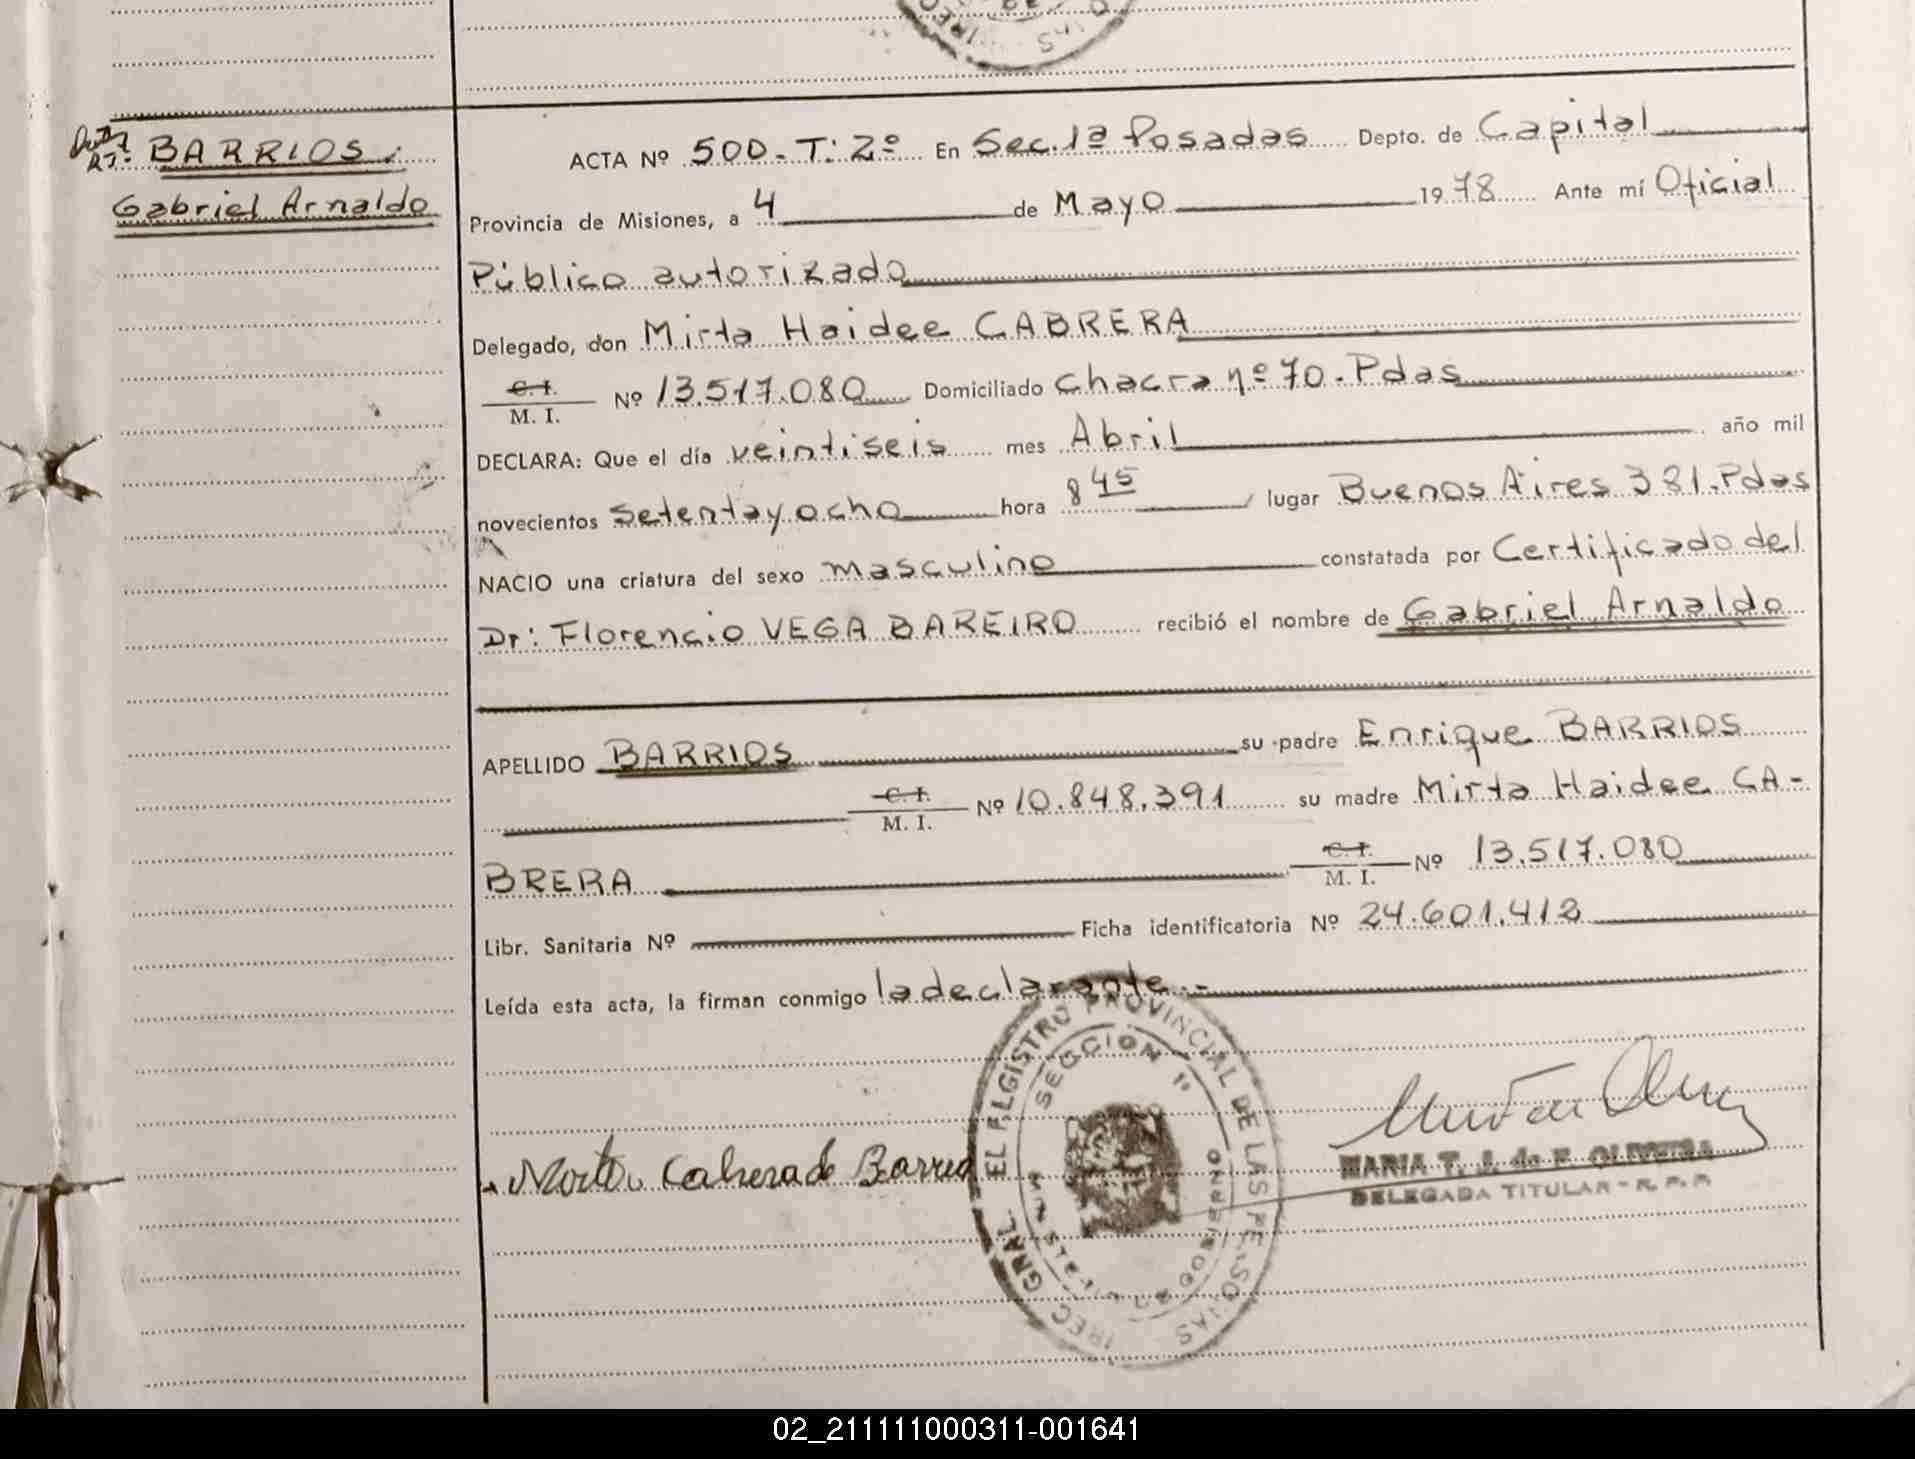 BARRIOS.
Gabriel Arnaldo
ACTA Nº 500. T: 2º En Sec. 1ª Posadas Depto. de Capital
Provincia de Misiones, a 4 de Mayo 1978 Ante mí Oficial
Público autorizado
Delegado, don Mirta Haidee CABRERA
C. I.
M. I. Nº 13.517.080 Domiciliado Chacra nº 70. Pdas
DECLARA: Que el día veintiseis mes Abril año mil
novecientos setenta y ocho hora 8 45 lugar Buenos Aires 381. Pdas
NACIO una criatura del sexo masculino constatada por Certificado del
Dr: Florencio VEGA BAREIRO recibió el nombre de Gabriel Arnaldo
APELLIDO BARRIOS su padre Enrique BARRIOS
C. I.
M. I. Nº 10.848.391 su madre Mirta Haidee CA-
BRERA C. I.
M. I. Nº 13.517.080
Libr. Sanitaria Nº Ficha identificatoria Nº 24.601.412
Leída esta acta, la firman conmigo la declarante.-
GRAL. EL REGISTRO PROVINCIAL DE LAS PERSONAS
SECCION 1ª
GOBIERNO
Cabrera de Barrios
MARIA T. J. de F. OLIVEIRA
DELEGADA TITULAR - R. P. P.
02_211111000311-001641